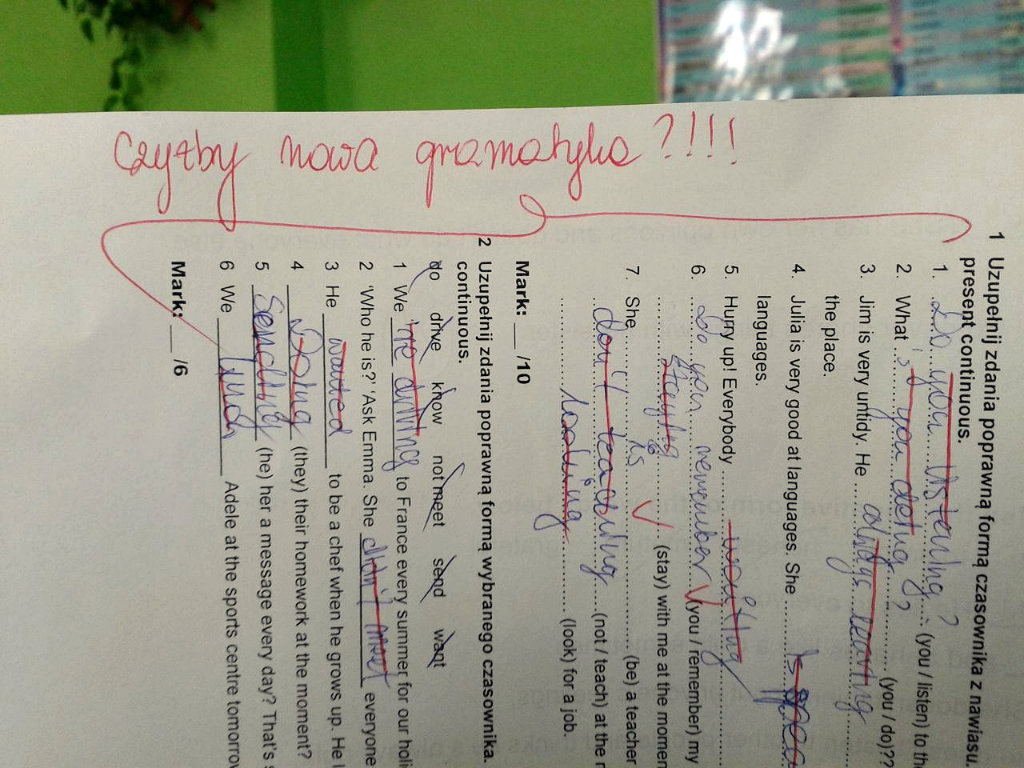 Czyżby nowa gramatyka?!!!!
1 Uzupełnij zdania poprawną formą czasownika z nawiasu.
present continuous.
1. Do you listening? (you / listen) to th
2. What 's you doing? (you / do)??
3. Jim is very untidy. He always leaving
the place.
4. Julia is very good at languages. She is
languages.
5. Hurry up! Everybody waiting
6. Do you remember (you / remember) my
staying (stay) with me at the momen
7. She is (be) a teacher
don't teaching (not / teach) at the
looking (look) for a job.
Mark: ___ /10
2 Uzupełnij zdania poprawną formą wybranego czasownika.
continuous.
do drive know not meet send want
1 We driving to France every summer for our holi
2 'Who he is?' 'Ask Emma. She didn't meet everyone
3 He wanted to be a chef when he grows up. He
4 Doing (they) their homework at the moment?
5 Sending (he) her a message every day? That's
6 We Adele at the sports centre tomorrow
Mark: ___ /6